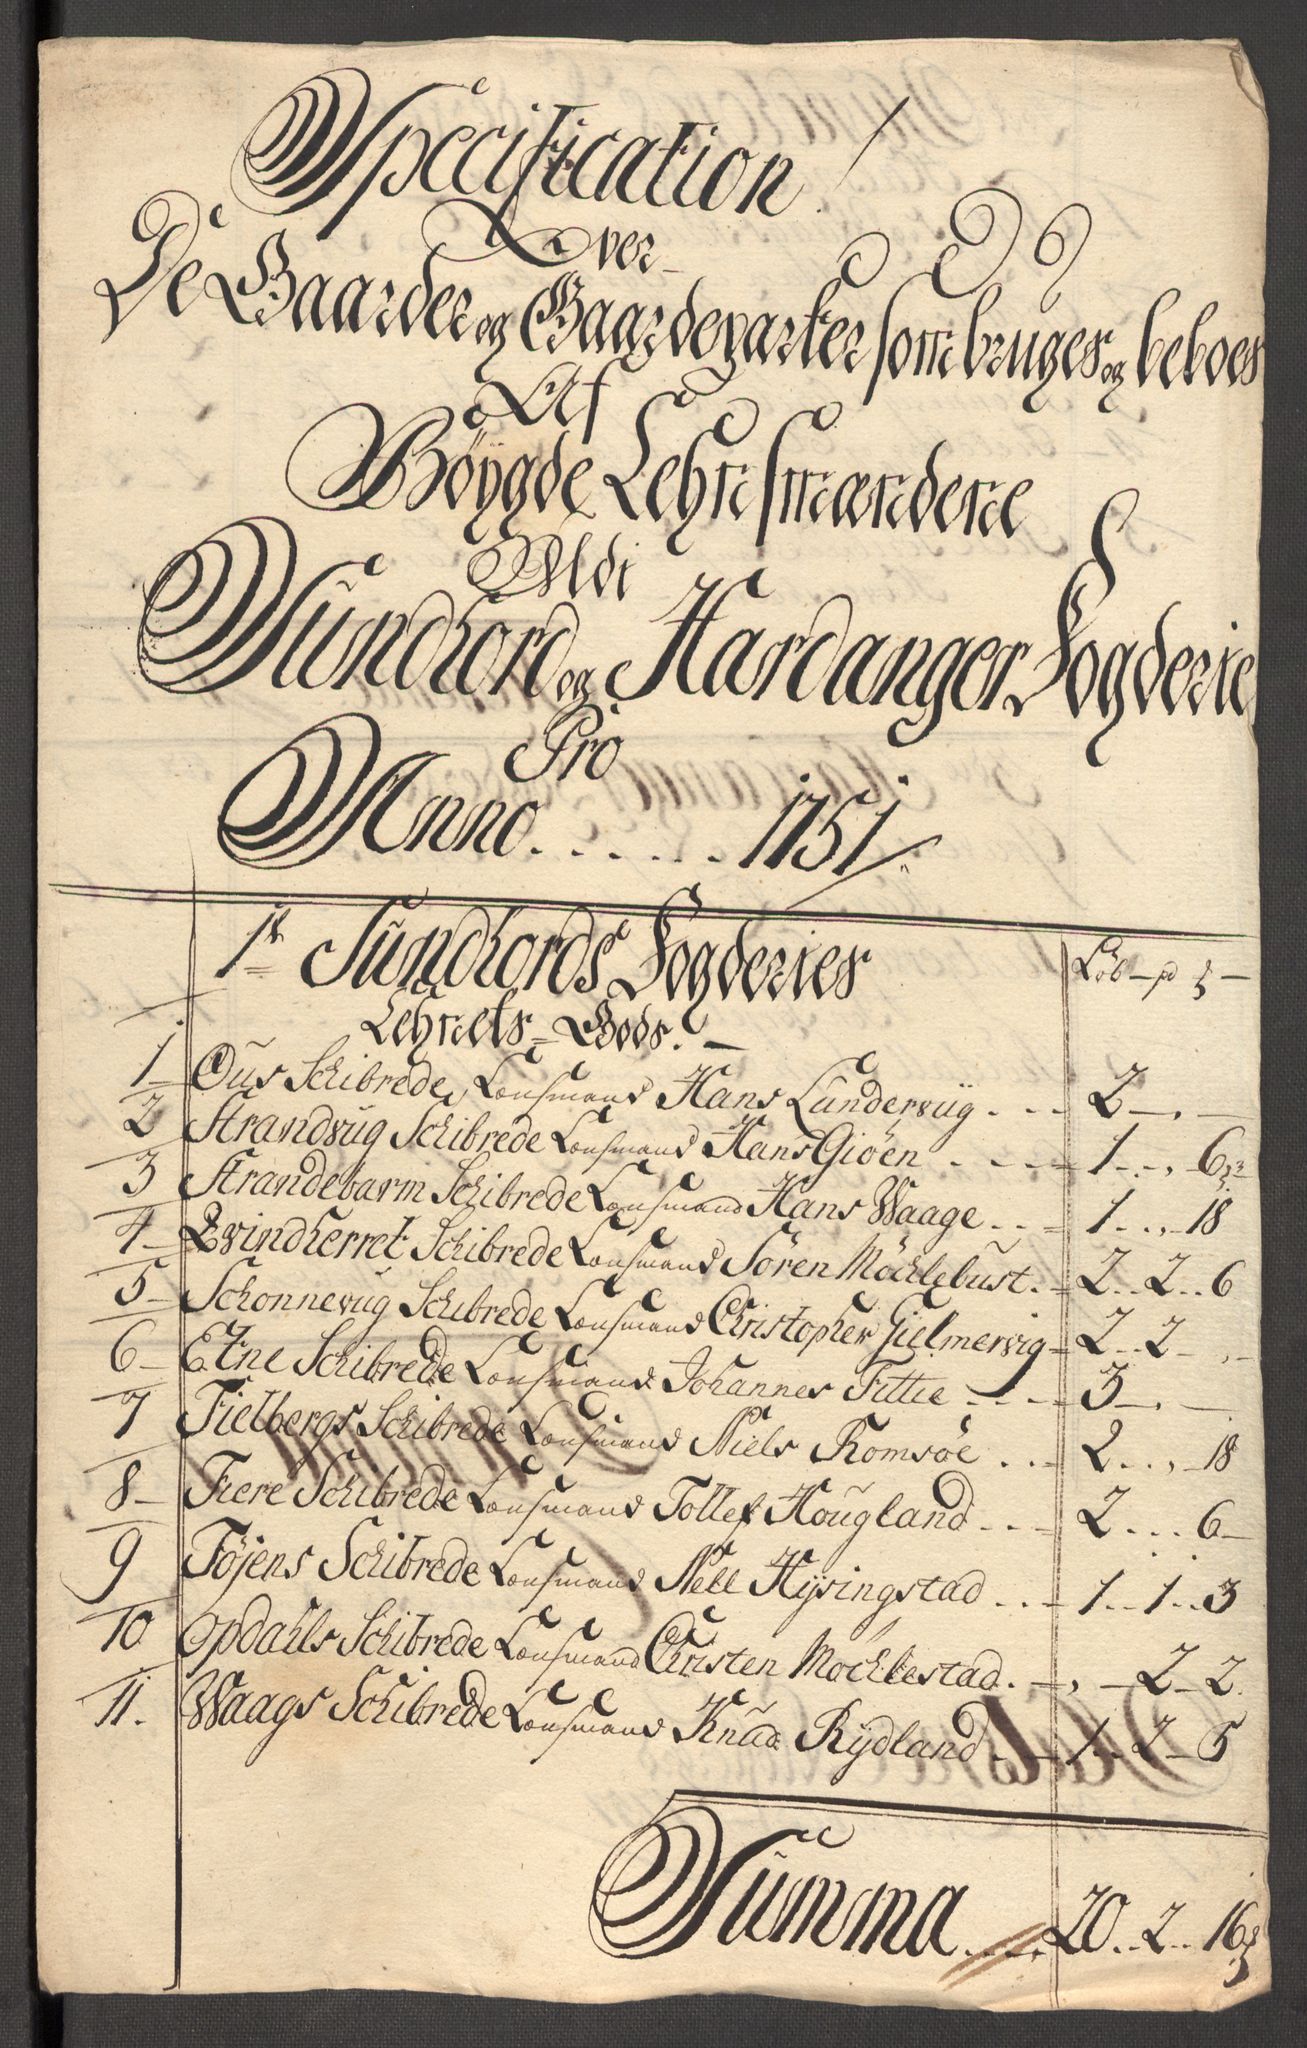 Specification
Over
De Gaarder og Gaardeparter som bruges og beboes
Af
Böygde Lehnsmændene
Udi
Sundhord og Hardanger Fogderie
Pro
Anno . . . . . . 1751.
1te Sundhords Fogderies Löb - pd -
Lehnets = Gods. -
1 Öus Schibrede, Lensmand Hans Lundervüg . . . 2 - , -
2 Strandvüg Schibrede Lensmand Hans Giöen . . . . 1 . . , 6
3 Strandebarm Schibrede Lensmand Hans Waage . . . 1 . . , 18
4 Qvindherret Schibrede Lensmand Sören Möchlebust . 2 . . 2 . . 6
5 Schonnevüg Schibrede Lensmand Christopher Gielmervig 2 . . 2 - , -
6 Etne Schibrede Lensmand Johannes Fittie . . . . 3 - , -
7 Fielbergs Schibrede Lensmand Niels Romsöe . . . 2 . . , 18
8 Fiere Schibrede Lensmand Tollef Hougland . . . 2 . . . 6 -
9 Föjens Schibrede Lensmand Nell Hysingstad . . . 1 . . 1 . . 3
10 Opdahls Schibrede Lensmand Christen Möchlestad . - , - 2 - 2.
11. Waags Schibrede Lensmand Knud Rydland . . 1 . . 2 - 5
Summa . . . . 20 . . 2 . . 16